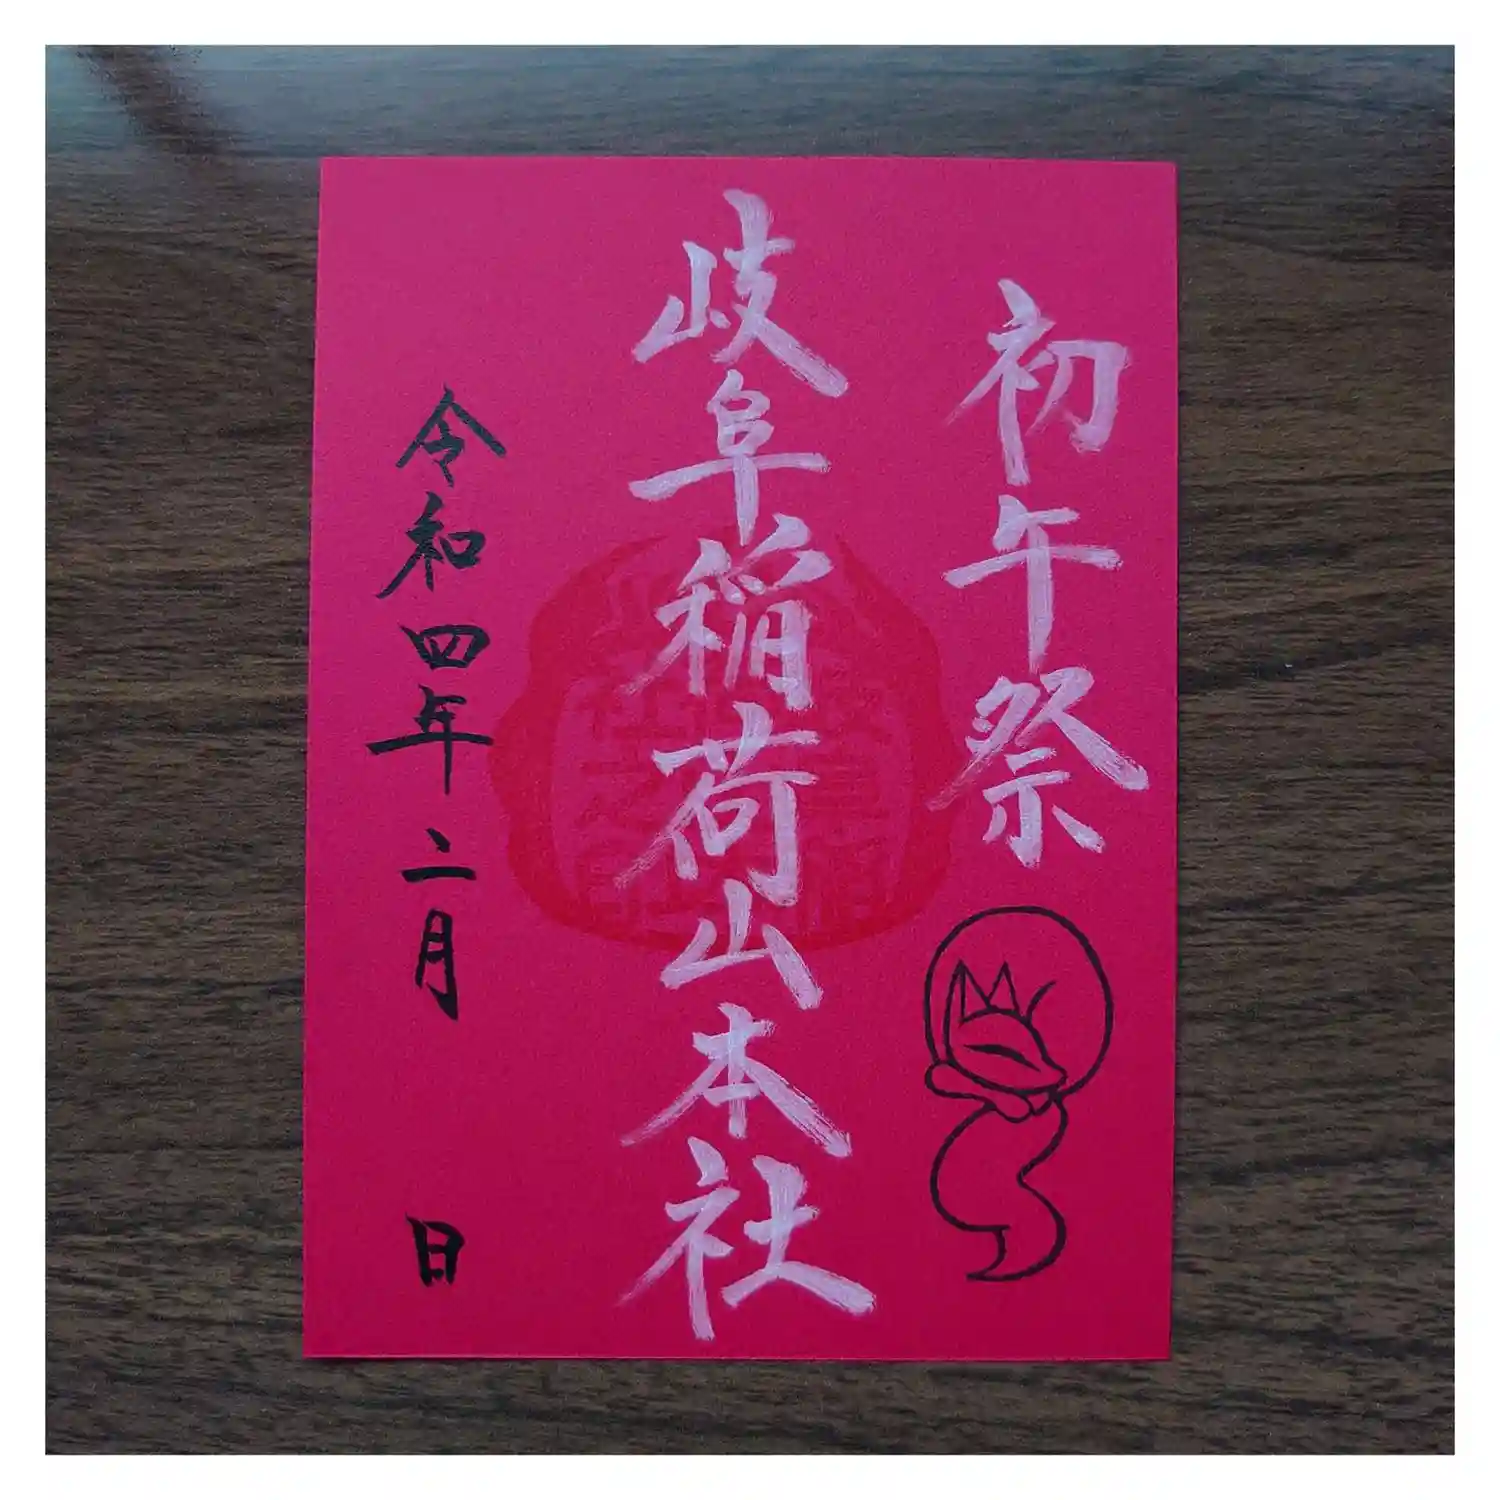 初午祭
岐阜稲荷山本社
令和四年二月 日